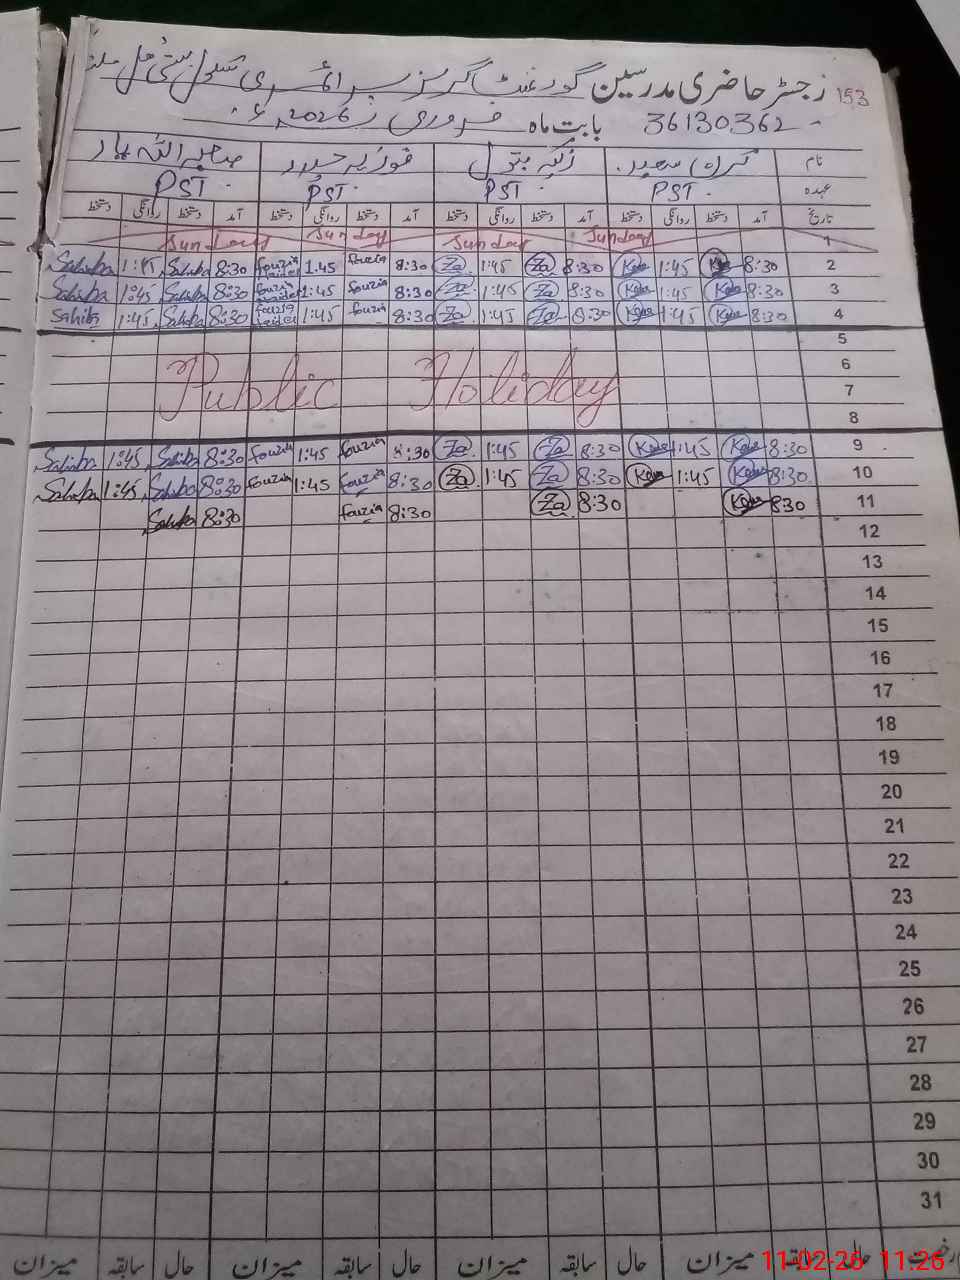 153
رجسٹر حاضری مدرسین گورنمنٹ گرلز پرائمری سکول بستی
36130362 بابت ماہ فروری 2026ء
نام کرن سعید زکیہ بتول فوزیہ حیدر
عہدہ PST. PST PST. PST.
تاریخ آمد دستخط روانگی دستخط آمد دستخط روانگی دستخط آمد دستخط روانگی دستخط آمد دستخط روانگی دستخط
1 Sunday Sunday Sunday Sunday
Sahiba Sahiba 8:30 fouzia haider 1:45 fouzia 8:30 Za 1:45 Za 8:30 1:45 8:30 2
Sahiba 1:45 Sahiba 8:30 fouzia haider 1:45 fouzia 8:30 Za 1:45 Za 8:30 1:45 8:30 3
Sahiba 1:45 Sahiba 8:30 fouzia haider 1:45 fouzia 8:30 Za 1:45 Za 8:30 1:45 8:30 4
5
6
Public Holiday
7
8
Sahiba 1:45 Sahiba 8:30 fouzia 1:45 fouzia 8:30 Za 1:45 Za 8:30 1:45 8:30 9
Sahiba 1:45 Sahiba 8:30 fouzia 1:45 fouzia 8:30 Za 1:45 Za 8:30 1:45 8:30 10
Sahiba 8:30 fouzia 8:30 Za 8:30 8:30 11
12
13
14
15
16
17
18
19
20
21
22
23
24
25
26
27
28
29
30
31
رخصت حال سابقہ میزان حال سابقہ میزان حال سابقہ میزان حال سابقہ میزان
11-02-26 11:26